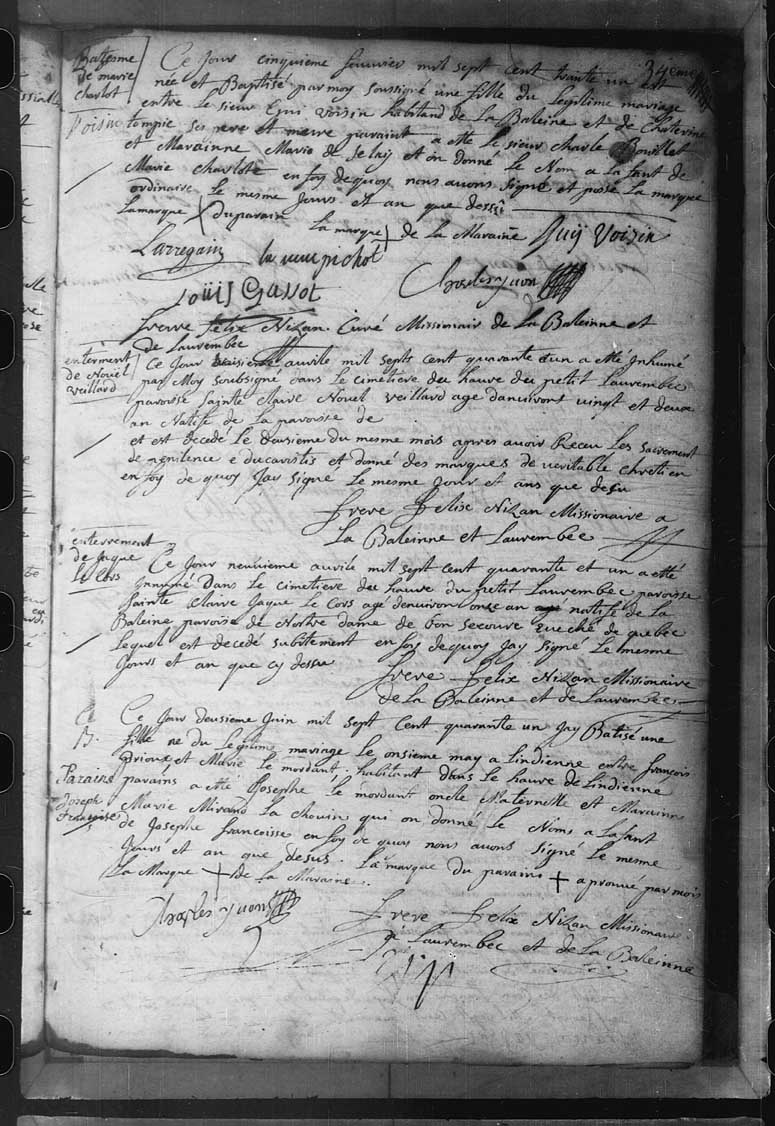 Batesme
de marie
charlot
Voisin
34eme
Ce Jour cinquieme Janvier mil sept cent trante un est
née et Baptisé par moy soussigné une fille du legitime mariage
entre le sieur Voisin habitand de La Baleine et de Chaterine
ses pere et merre paraint a etté le sieur charle Bouillet
et Marainne Marie de et on donné le Nom a la fant de
Marie charlote en foy de quoy nous avons signé et posé la marque
ordinaire le mesme Jours et an que dessu
Lamarque X Du parain
La marque de la Maraine Guij Voizin
Larregain la veuu pichot
Charles yuon
Loüis Gassot
frerre felix Nizan Curé Missionair de La Baleinne et
de Laurembec
enterment
de Nouel
veillard
Ce Jour auvile mil septs cent quarante eun a été Jnhumé
par Moy soubsigne dans le cimetiere du haure du petit Laurembec
paroisse sainte Claire Nouel veillard age danuirons vingt et deux
an Natife de La paroisse de
et est decede le deusieme du mesme mois apres auoir Receu Les sacrement
de penitence e ducaristis et donné des marques de veritable chretien
en foy de quoy Jay signe le mesme Jour et ans que desu
frere felix Nizan Missionaire a
La Baleinne et Laurembec
enterrement
de Jaque
le Cors
Ce Jour neuuieme auvile mil sept cent quarante et un a etté
innumé Dans le cimetiere du haure du petit Laurembec paroisse
Sainte Claire Jaque le Cors agé denuiron onse an natife de la
Baleine paroise de Nostre dame de bon secoure eueché de quebec
lequel est decedé subitement en foy de quoy Jay signé le mesme
Jours et an que cy dessu
frere felix Nizan Missionaire
de la Baleinne et de Laurembec
B.
Ce Jour deusieme Juin mil sept cent quarante un Jay Batisé une
fille ne du legitime mariage le onsieme may a lindienne entre françois
Grioux et Marie le mordant habitant dans le haure de Lindienne
parains a etté Josephe le mordant oncle Maternelle et Maraine
Marie Mirand la chouin qui on donné le Noms a Lafant
de Josephe francoisse en foy de quoy nous auons signé le mesme
Jours et an que desus. La marque du parains + aprouué par mois
La Marque + de la Maraine.
Paraine
Joseph
françoise
Charles yuon
frere felix Nizan Missionaire
Laurembec et de La Baleinne